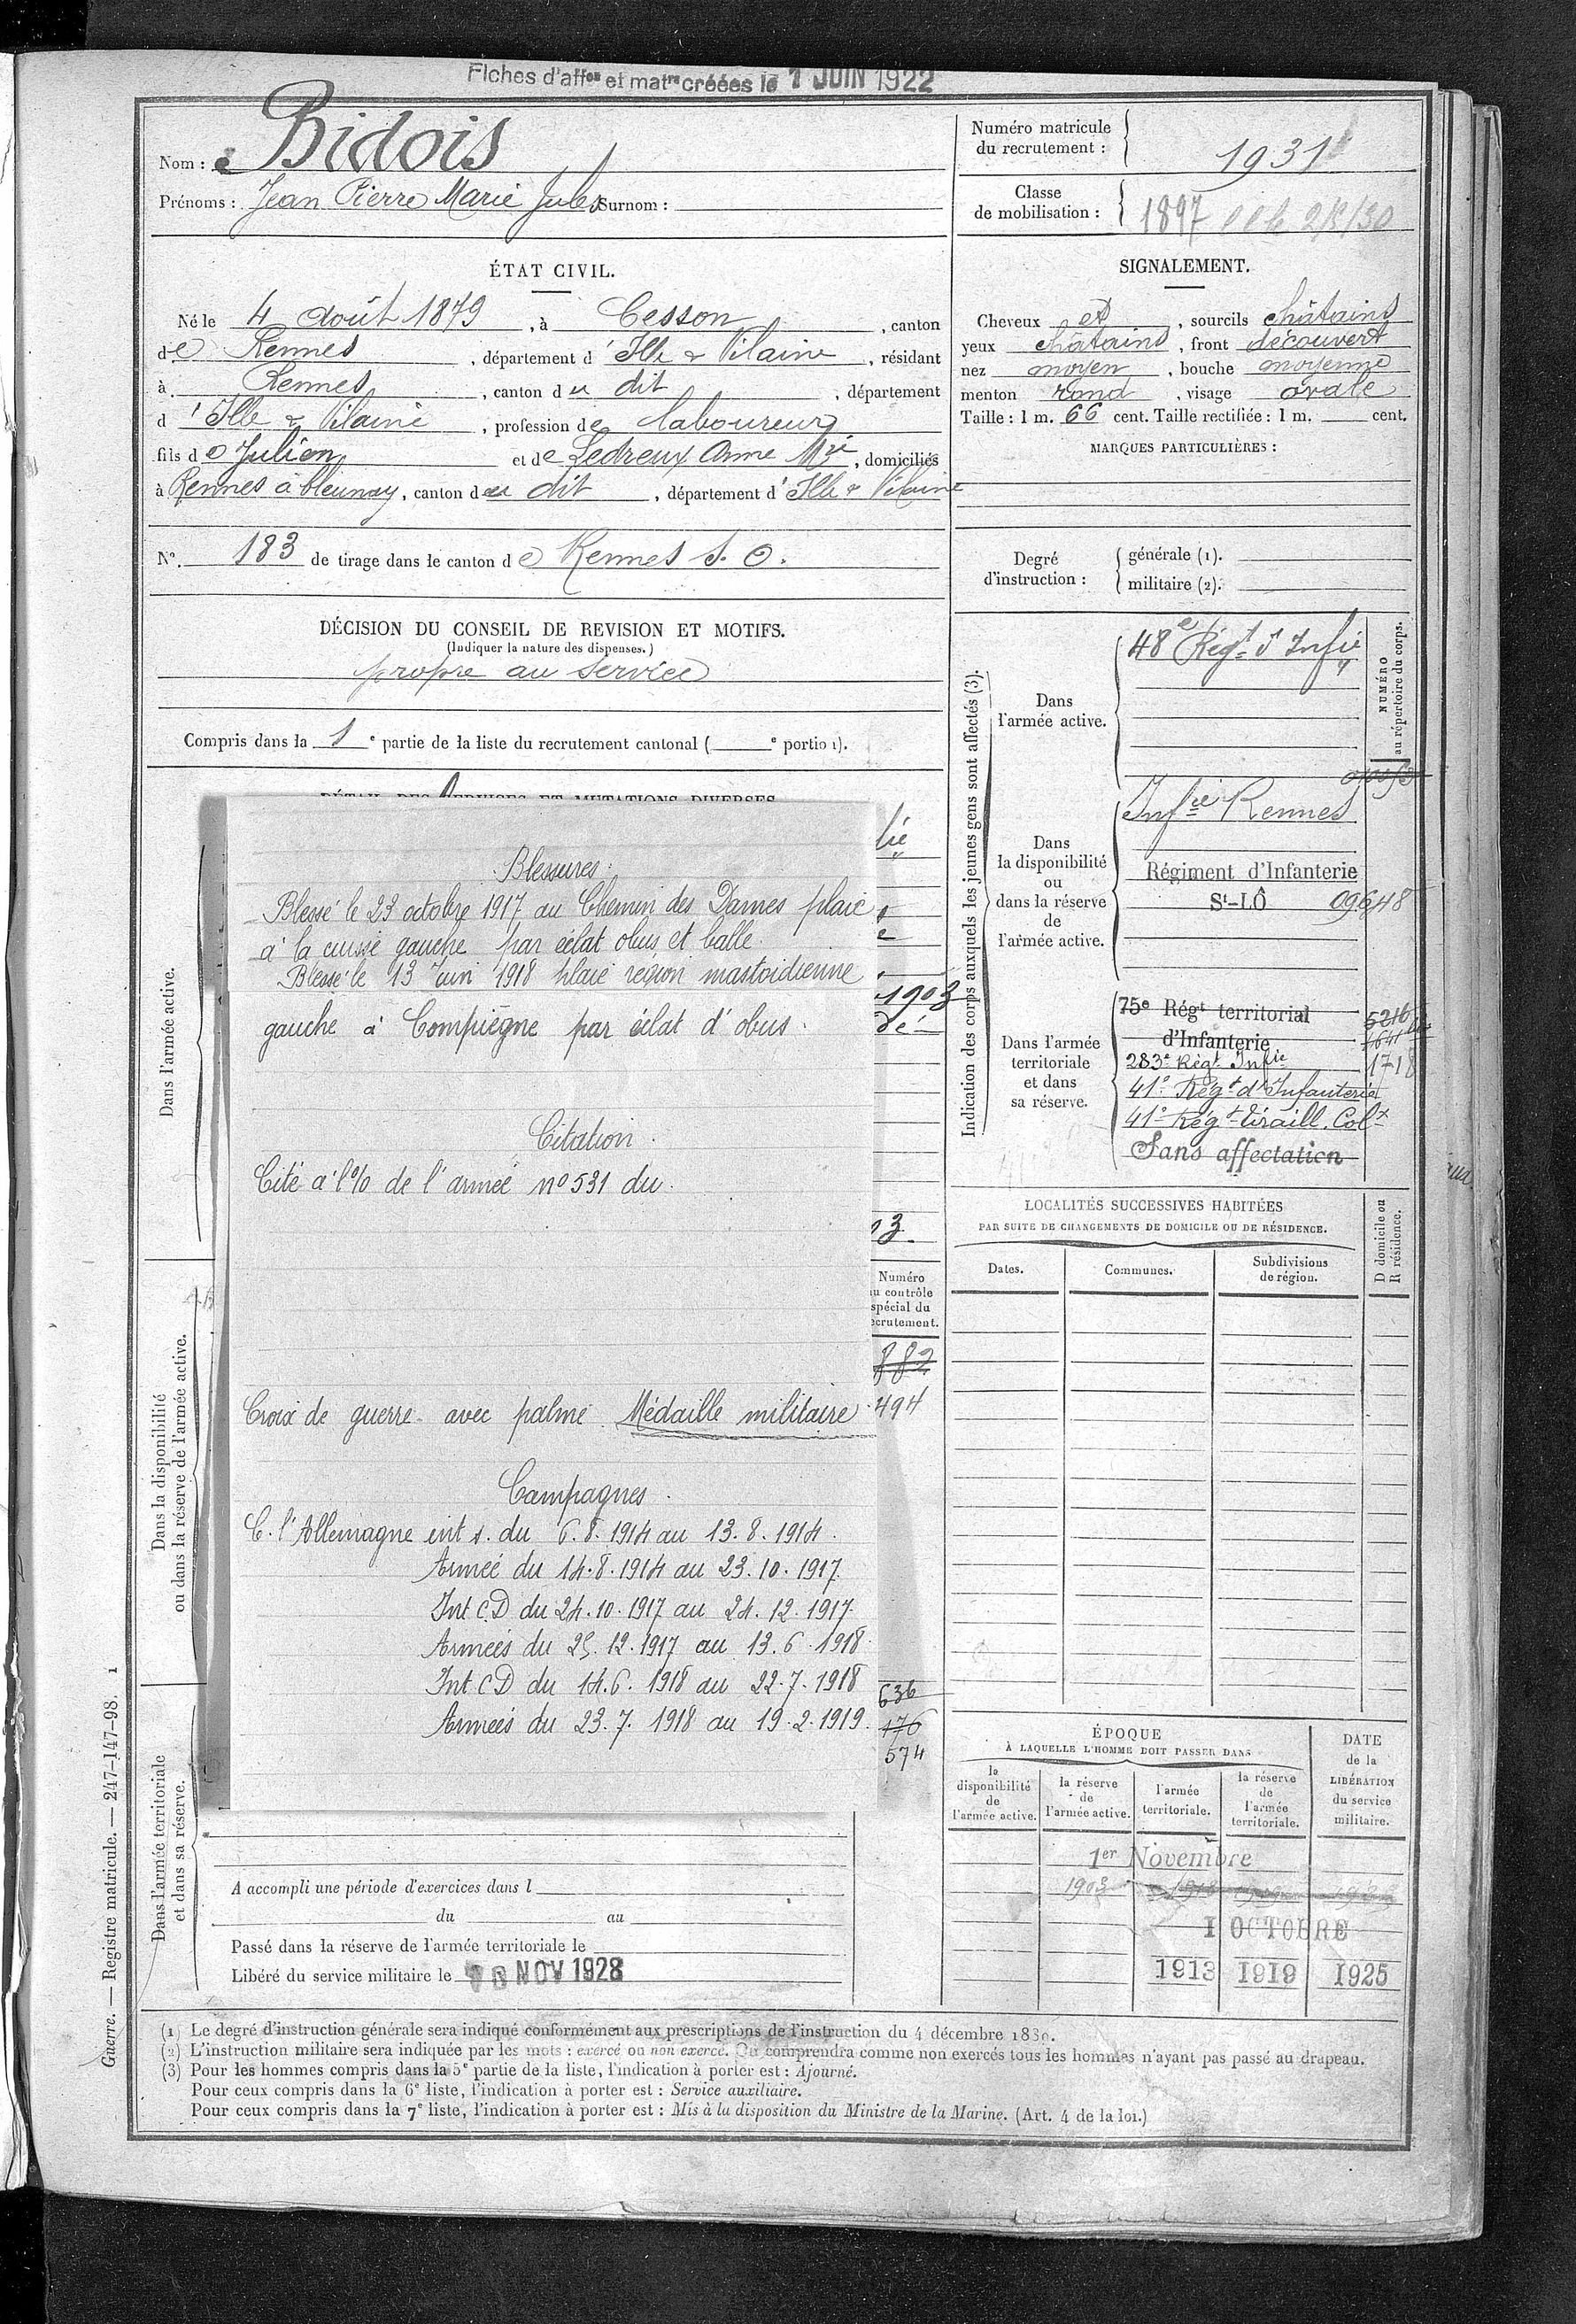 Fiches d'affon et matre créées le 1 JUIN 1922
Nom : Bidois
Prénoms : Jean Pierre Marie Jules Surnom :
Numéro matricule du recrutement : 1931
Classe de mobilisation : 1897
ÉTAT CIVIL.
Né le 4 août 1879, à Cesson, canton
de Rennes, département d'Ille & Vilaine, résidant
à Rennes, canton du dit, département
d'Ille & Vilaine, profession de laboureur
fils de Julien et de Ledreux Anne Mie, domiciliés
à Rennes à bleunay, canton du dit, département d'Ille & Vilaine
N° 183 de tirage dans le canton de Rennes S. O.
DÉCISION DU CONSEIL DE REVISION ET MOTIFS.
(Indiquer la nature des dispenses.)
propre au service
Compris dans la 1e partie de la liste du recrutement cantonal ( e portion).
SIGNALEMENT.
Cheveux et, sourcils châtains
yeux châtains, front découvert
nez moyen, bouche moyenne
menton rond, visage ovale
Taille : 1 m. 66 cent. Taille rectifiée : 1 m. cent.
MARQUES PARTICULIÈRES :
Degré d'instruction : générale (1).
militaire (2).
Indication des corps auxquels les jeunes gens sont affectés (3).
NUMÉRO au répertoire du corps.
Dans l'armée active.
48e Régt d'Infie
Dans la disponibilité ou dans la réserve de l'armée active.
Infie Rennes
Régiment d'Infanterie
St-LÔ 09648
Dans l'armée territoriale et dans sa réserve.
75e Régt territorial d'Infanterie 5216
283e Régt Infie 1718
41e Régt d'Infanterie
41e Régt tiraill. Colx
Sans affectation
DÉTAIL DES SERVICES ET MUTATIONS DIVERSES
Dans l'armée active.
Dans la disponibilité ou dans la réserve de l'armée active.
Dans l'armée territoriale et dans sa réserve.
Blessures
Blessé le 23 octobre 1917 au Chemin des Dames plaie
à la cuisse gauche par éclat obus et balle.
Blessé le 13 Juin 1918 plaie région mastoidienne
gauche à Compiègne par éclat d'obus.
Citation.
Cité à l'% de l'armée n° 531 du.
Croix de guerre avec palme Médaille militaire
Campagnes.
C. l'Allemagne int s. du 6.8.1914 au 13.8.1914.
Armée du 14.8.1914 au 23.10.1917.
Int C.D du 24.10.1917 au 24.12.1917.
Armées du 25.12.1917 au 13.6.1918.
Int CD du 14.6.1918 au 22.7.1918
Armées du 23.7.1918 au 19.2.1919.
1903
Numéro
au contrôle
spécial du
recrutement.
882
494
636
176
574
A accompli une période d'exercices dans l
du au
Passé dans la réserve de l'armée territoriale le
Libéré du service militaire le 10 NOV 1928
LOCALITÉS SUCCESSIVES HABITÉES
PAR SUITE DE CHANGEMENTS DE DOMICILE OU DE RÉSIDENCE.
Dates. Communes. Subdivisions de région. D domicile ou R résidence.
ÉPOQUE
À LAQUELLE L'HOMME DOIT PASSER DANS
la disponibilité de l'armée active. la réserve de l'armée active. l'armée territoriale. la réserve de l'armée territoriale.
DATE de la LIBÉRATION du service militaire.
1er Novembre
1903
1 OCTOBRE
1913 1919 1925
Guerre. — Registre matricule. — 247-147-98. 1
(1) Le degré d'instruction générale sera indiqué conformément aux prescriptions de l'instruction du 4 décembre 1830.
(2) L'instruction militaire sera indiquée par les mots : exercé ou non exercé. On comprendra comme non exercés tous les hommes n'ayant pas passé au drapeau.
(3) Pour les hommes compris dans la 5e partie de la liste, l'indication à porter est : Ajourné.
Pour ceux compris dans la 6e liste, l'indication à porter est : Service auxiliaire.
Pour ceux compris dans la 7e liste, l'indication à porter est : Mis à la disposition du Ministre de la Marine. (Art. 4 de la loi.)